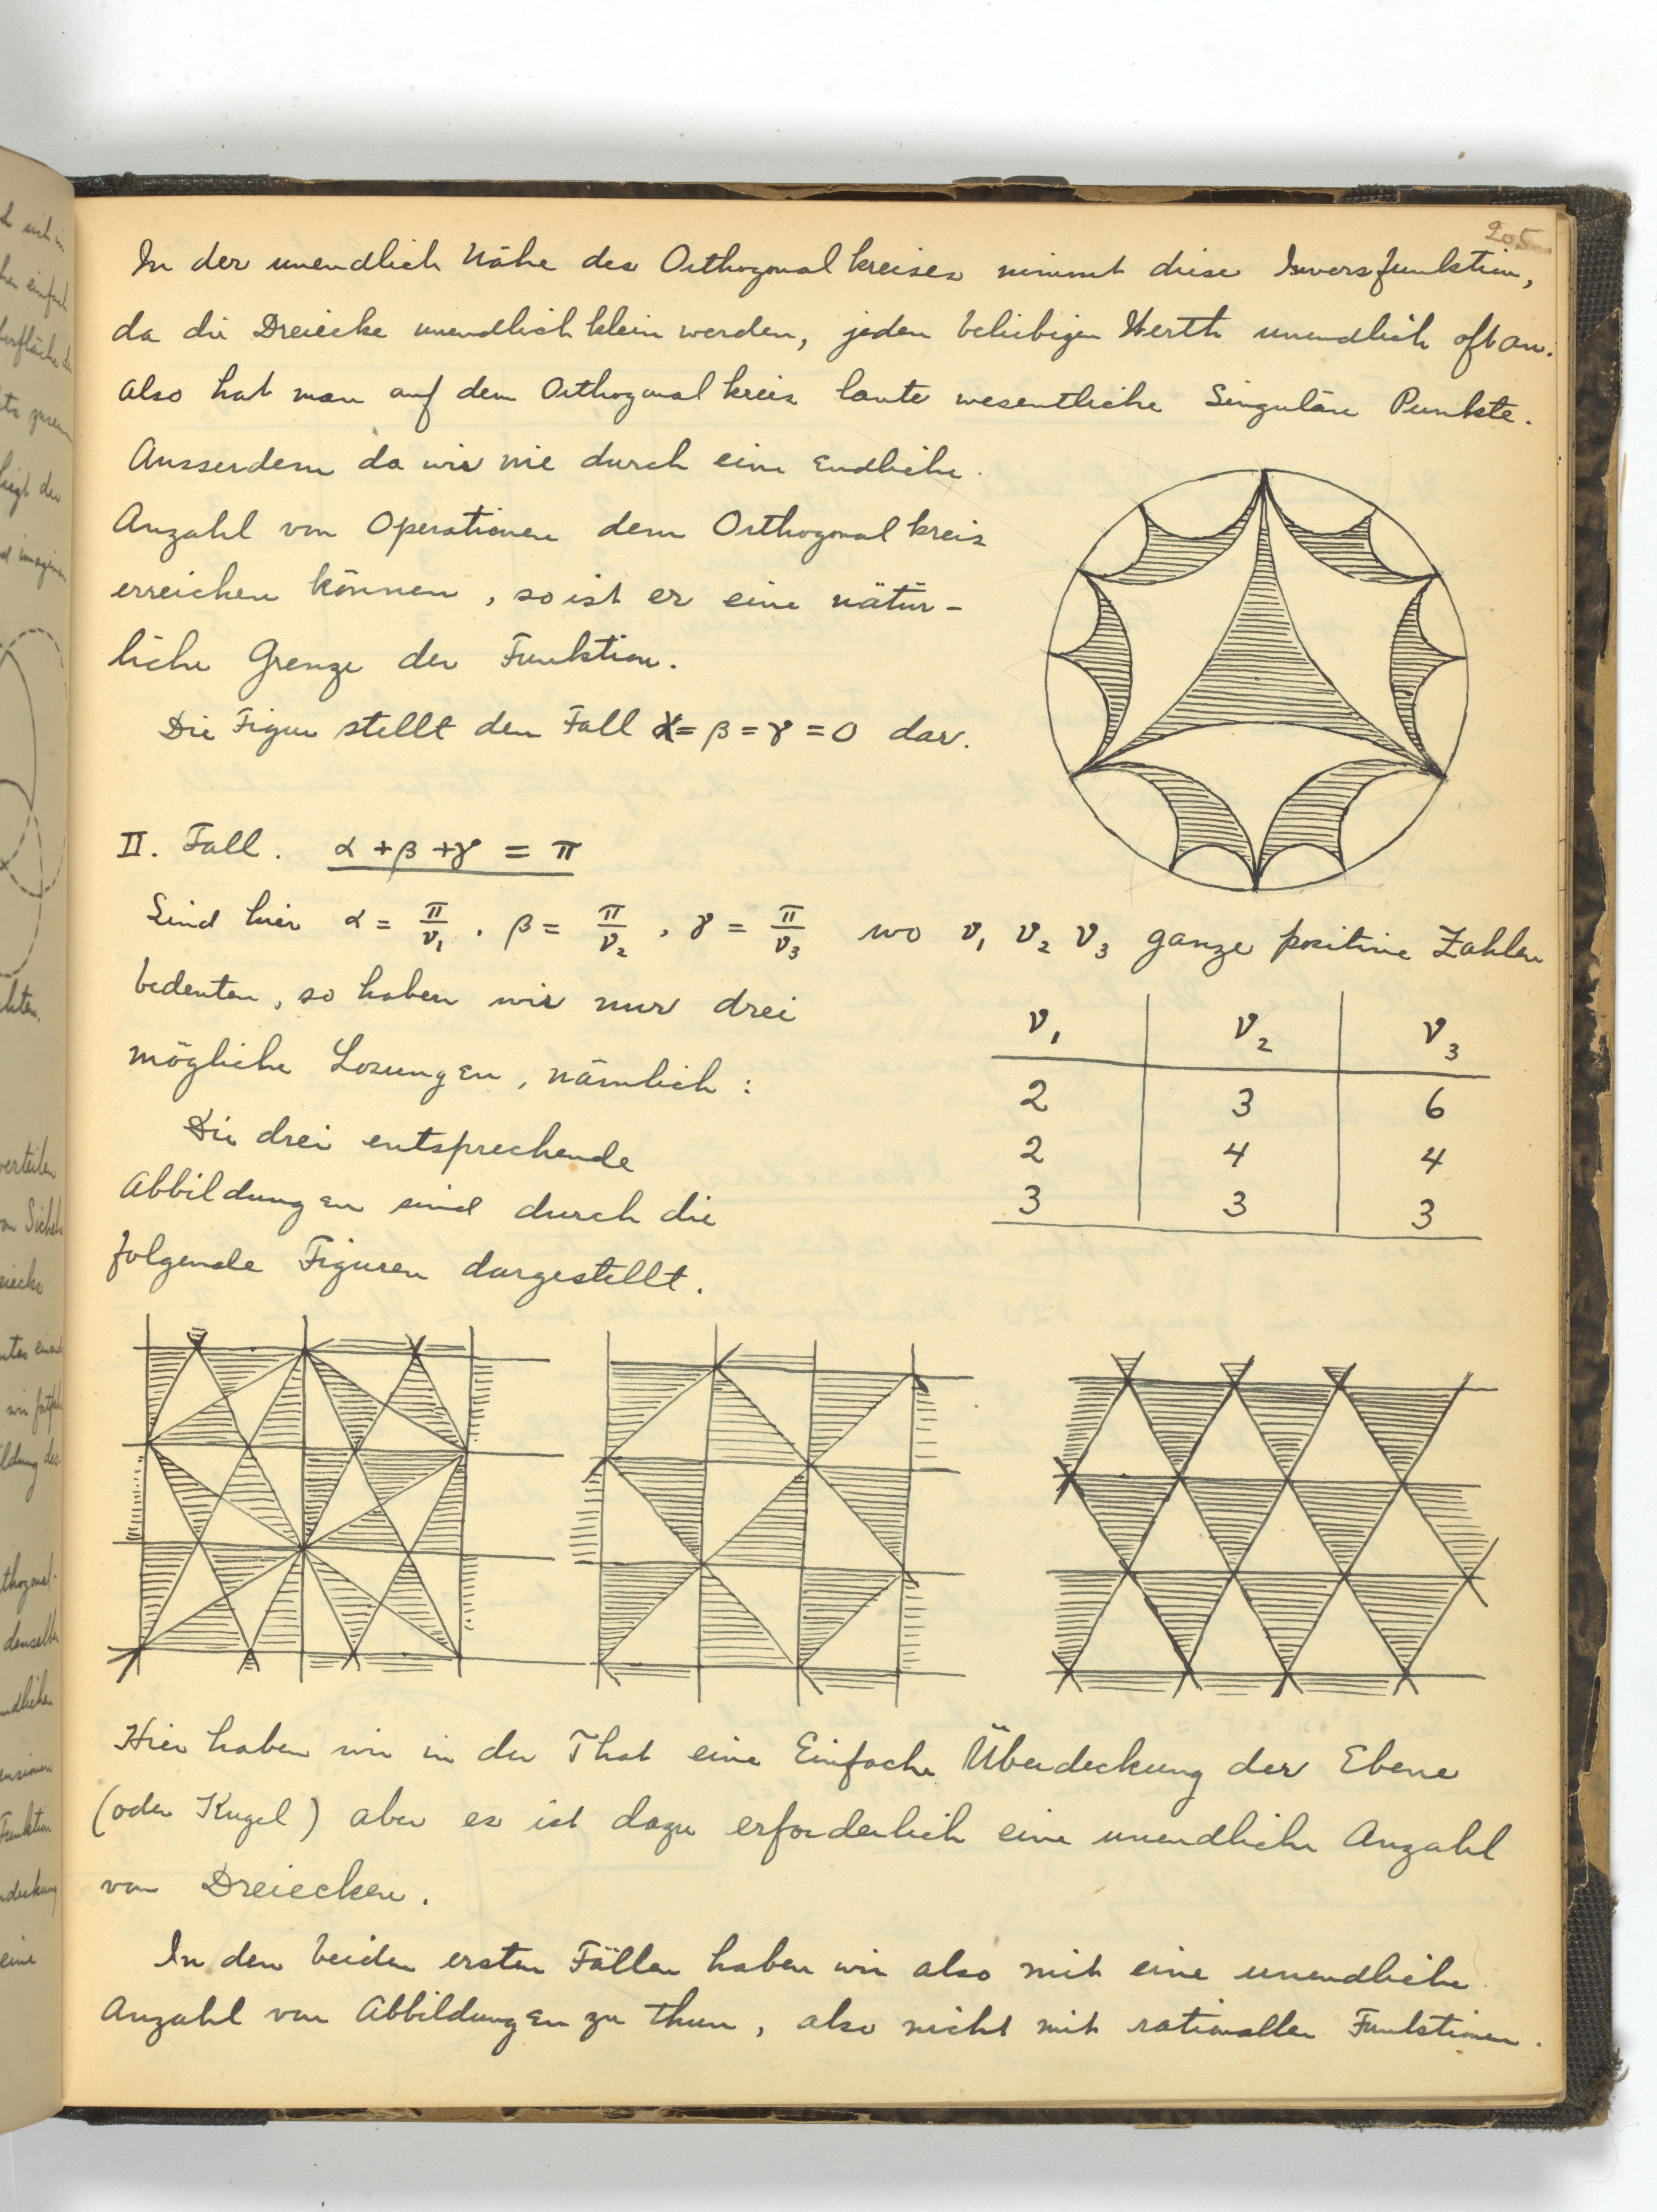 205
In der unendlich Nähe des Orthogonalkreises nimmt diese Inversfunktion,
da die Dreiecke unendlich klein werden, jeden beliebigen Werth unendlich oft an.
Also hat man auf dem Orthogonalkreis laute wesentliche Singuläre Punkte.
Ausserdem da wir nie durch eine Endliche
Anzahl von Operationen dem Orthogonalkreis
erreichen können, so ist er eine nätür-
liche Grenze der Funktion.
Die Figur stellt den Fall α = β = γ = 0 dar.
II. Fall. α + β + γ = π
Sind hier α = π/ν₁, β = π/ν₂, γ = π/ν₃ wo ν₁ ν₂ ν₃ ganze positive Zahlen
bedeuten, so haben wir nur drei
mögliche Lösungen, nämlich:
Die drei entsprechende
Abbildungen sind durch die
folgende Figuren dargestellt.
ν₁ ν₂ ν₃
2 3 6
2 4 4
3 3 3
Hier haben wir in der That eine Einfache Überdeckung der Ebene
(oder Kugel) aber es ist dazu erforderlich eine unendliche Anzahl
von Dreiecken.
In den beiden ersten Fällen haben wir also mit eine unendliche
Anzahl von Abbildungen zu thun, also nicht mit rationallen Funktionen.